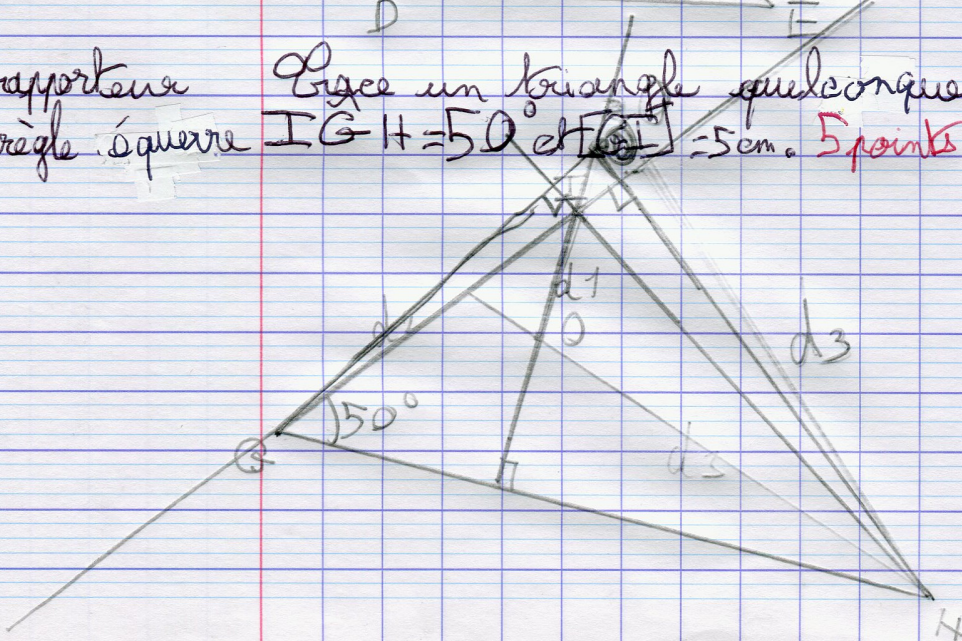 D E
rapporteur Trace un triangle quelconque
règle équerre IGH=50° et [GI]=5cm. 5 points
I
d1
d2
O
d3
50°
G
d3
H